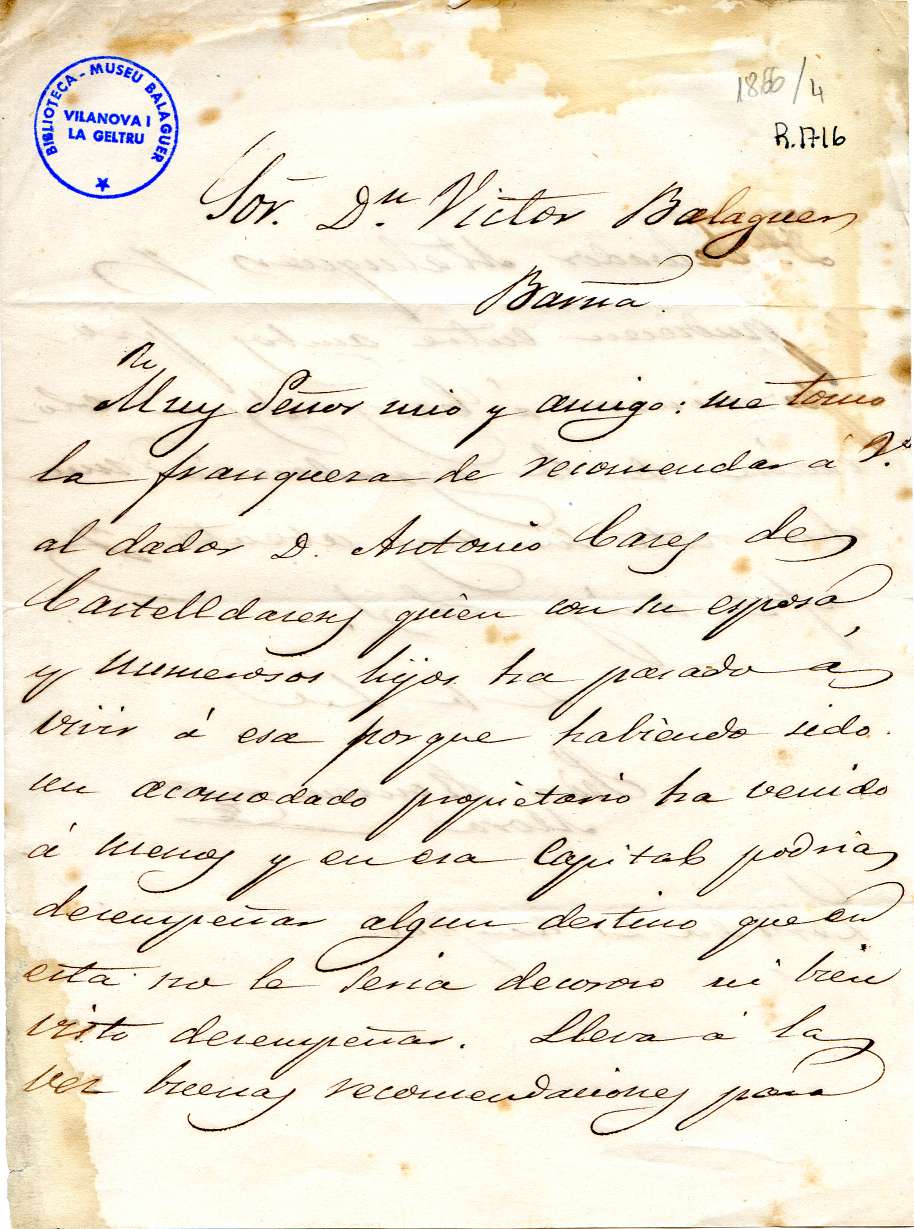 BIBLIOTECA - MUSEU BALAGUER
VILANOVA I
LA GELTRU
1866/4
R.1716
Sor. Dn. Victor Balaguer
Barna.
Muy Señor mio y amigo: me tomo
la franqueza de recomendar á V.
al dador D. Antonio Cases de
Castelldasens quien con su esposa
y numerosos hijos ha pasado á
vivir á esa porque habiendo sido
un acomodado propietario ha venido
á menos y en esa Capital podria
desempeñar algun destino que en
esta no le seria decoroso ni bien
visto desempeñar. Lleva á la
vez buenas recomendaciones para